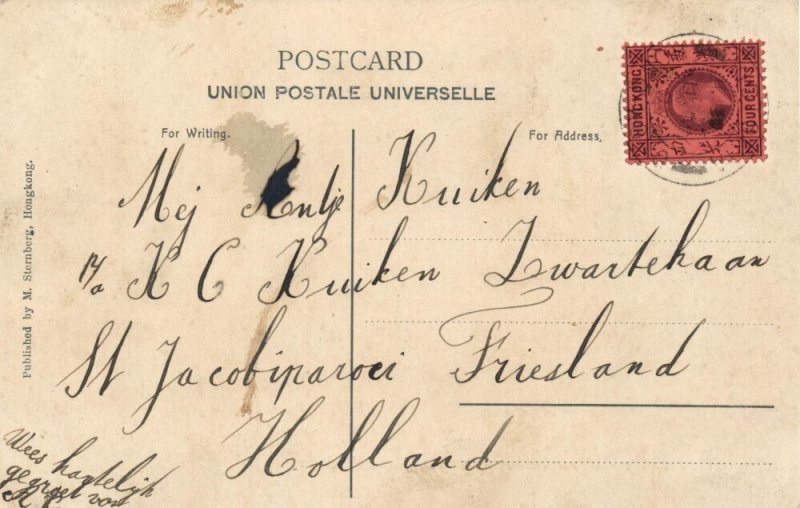 POSTCARD
UNION POSTALE UNIVERSELLE
For Writing.
For Address.
HONG KONG
FOUR CENTS
Published by M. Sternberg, Hongkong.
Mej Antje Kuiken
K C Kuiken Zwartehaan
St Jacobiparoci Friesland
Holland
Wees hartelijk
gegroet van